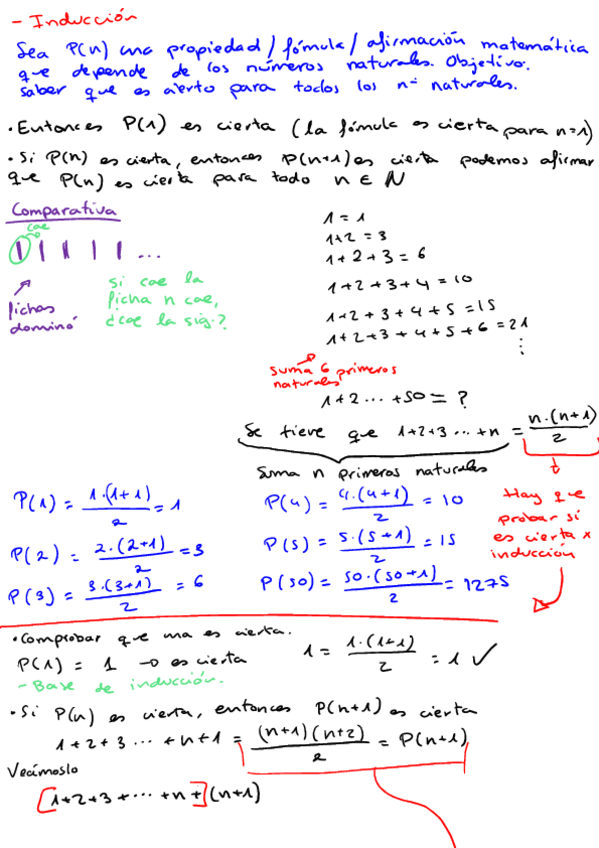 - Inducción
Sea P(n) una propiedad/fórmula/afirmación matemática
que depende de los números naturales. Objetivo:
saber que es cierto para todos los nº naturales.
• Entonces P(1) es cierta (la fórmula es cierta para n=1)
• Si P(n) es cierta, entonces P(n+1) es cierta podemos afirmar
que P(n) es cierta para todo n ∈ N
Comparativa
cae
| | | | | ...
fichas
dominó
si cae la
ficha n cae,
¿cae la sig.?
1 = 1
1+2 = 3
1+2+3 = 6
1+2+3+4 = 10
1+2+3+4+5 = 15
1+2+3+4+5+6 = 21
⋮
suma 6 primeros
naturales
1+2 ... +50 = ?
Se tiene que 1+2+3 ... +n = n·(n+1)/2
Suma n primeros naturales
Hay que
probar si
es cierta x
inducción
P(1) = 1·(1+1)/2 = 1
P(4) = 4·(4+1)/2 = 10
P(2) = 2·(2+1)/2 = 3
P(5) = 5·(5+1)/2 = 15
P(3) = 3·(3+1)/2 = 6
P(50) = 50·(50+1)/2 = 1275
• Comprobar que una es cierta.
P(1) = 1 → es cierta 1 = 1·(1+1)/2 = 1 ✓
- Base de inducción.
• Si P(n) es cierta, entonces P(n+1) es cierta
1+2+3 ... +n+1 = (n+1)(n+2)/2 = P(n+1)
Veámoslo
[1+2+3+ ... +n+] (n+1)